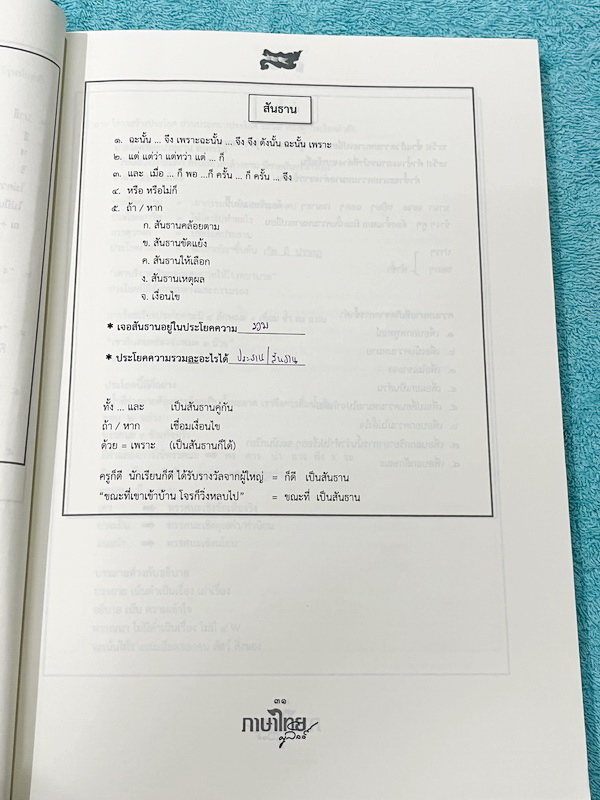 สันธาน
๑. ฉะนั้น ... จึง เพราะฉะนั้น ... จึง จึง ดังนั้น ฉะนั้น เพราะ
๒. แต่ แต่ว่า แต่ทว่า แต่ ... ก็
๓. และ เมื่อ ... ก็ พอ ...ก็ ครั้น ... ก็ ครั้น ... จึง
๔. หรือ หรือไม่ก็
๕. ถ้า / หาก
ก. สันธานคล้อยตาม
ข. สันธานขัดแย้ง
ค. สันธานให้เลือก
ง. สันธานเหตุผล
จ. เงื่อนไข
* เจอสันธานอยู่ในประโยคความ รวม
* ประโยคความรวมละอะไรได้ ประธาน/สันธาน
ทั้ง ... และ เป็นสันธานคู่กัน
ถ้า / หาก เชื่อมเงื่อนไข
ด้วย = เพราะ (เป็นสันธานก็ได้)
ครูก็ดี นักเรียนก็ดี ได้รับรางวัลจากผู้ใหญ่ = ก็ดี เป็นสันธาน
"ขณะที่เขาเข้าบ้าน โจรก็วิ่งหลบไป" = ขณะที่ เป็นสันธาน
๓๑
ภาษาไทย